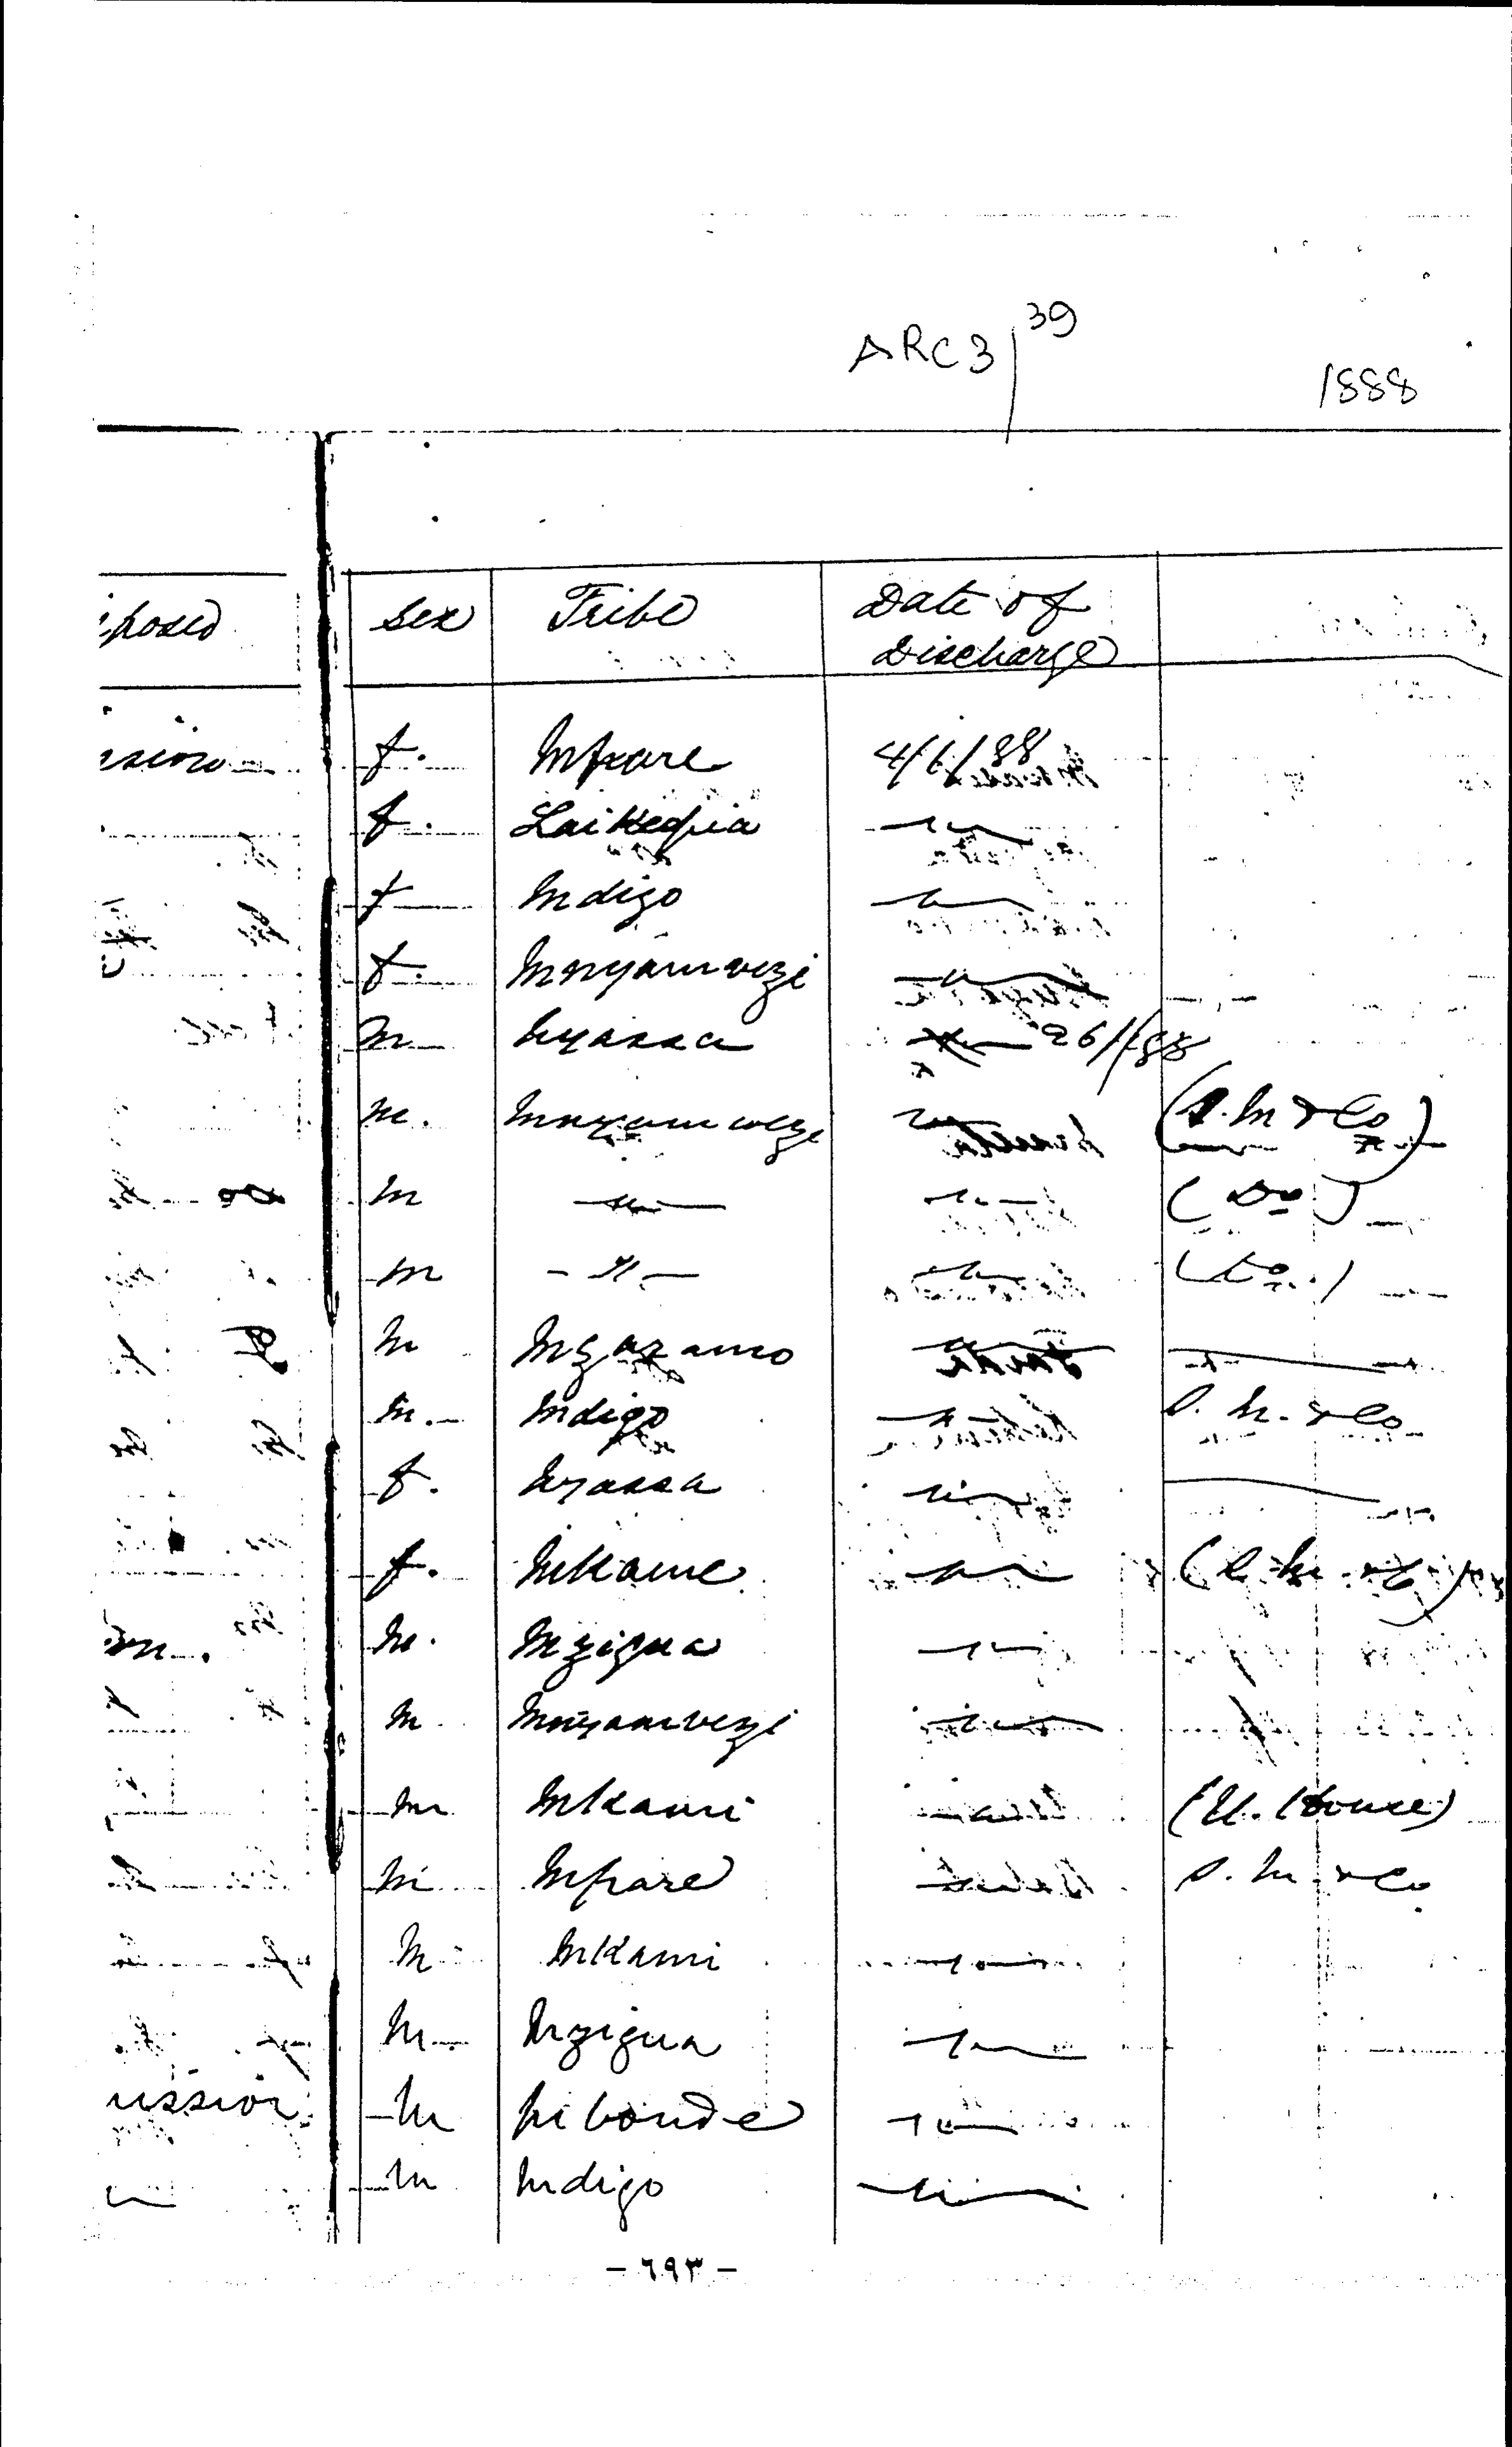 ARC3/39
1888
posed Sex Tribe Date of
Discharge
ssion f. Mpare 4/6/88
f. Laikepia —"—
f Mdigo —"—
f. Mnyamvezi —"—
m Nyassa 26/ /88
m. Mnyamwezi —"— (S. M & Co)
m —"— —"— (Do)
m —"— —"— (Do.)
m Mzaramo —"— —
m. Mdigo —"— S. M. & Co
f. Nyassa —"— —
f. Mkame —"—
m. Mzigua —"—
m Mnyamvezi —"—
m Mkami —"— (U. House)
m Mpare —"— S. M. & Co
m Mkami —"—
m Mzigua —"—
ission m Mbonde —"—
m Mdigo —"—
- ٦٩٣ -